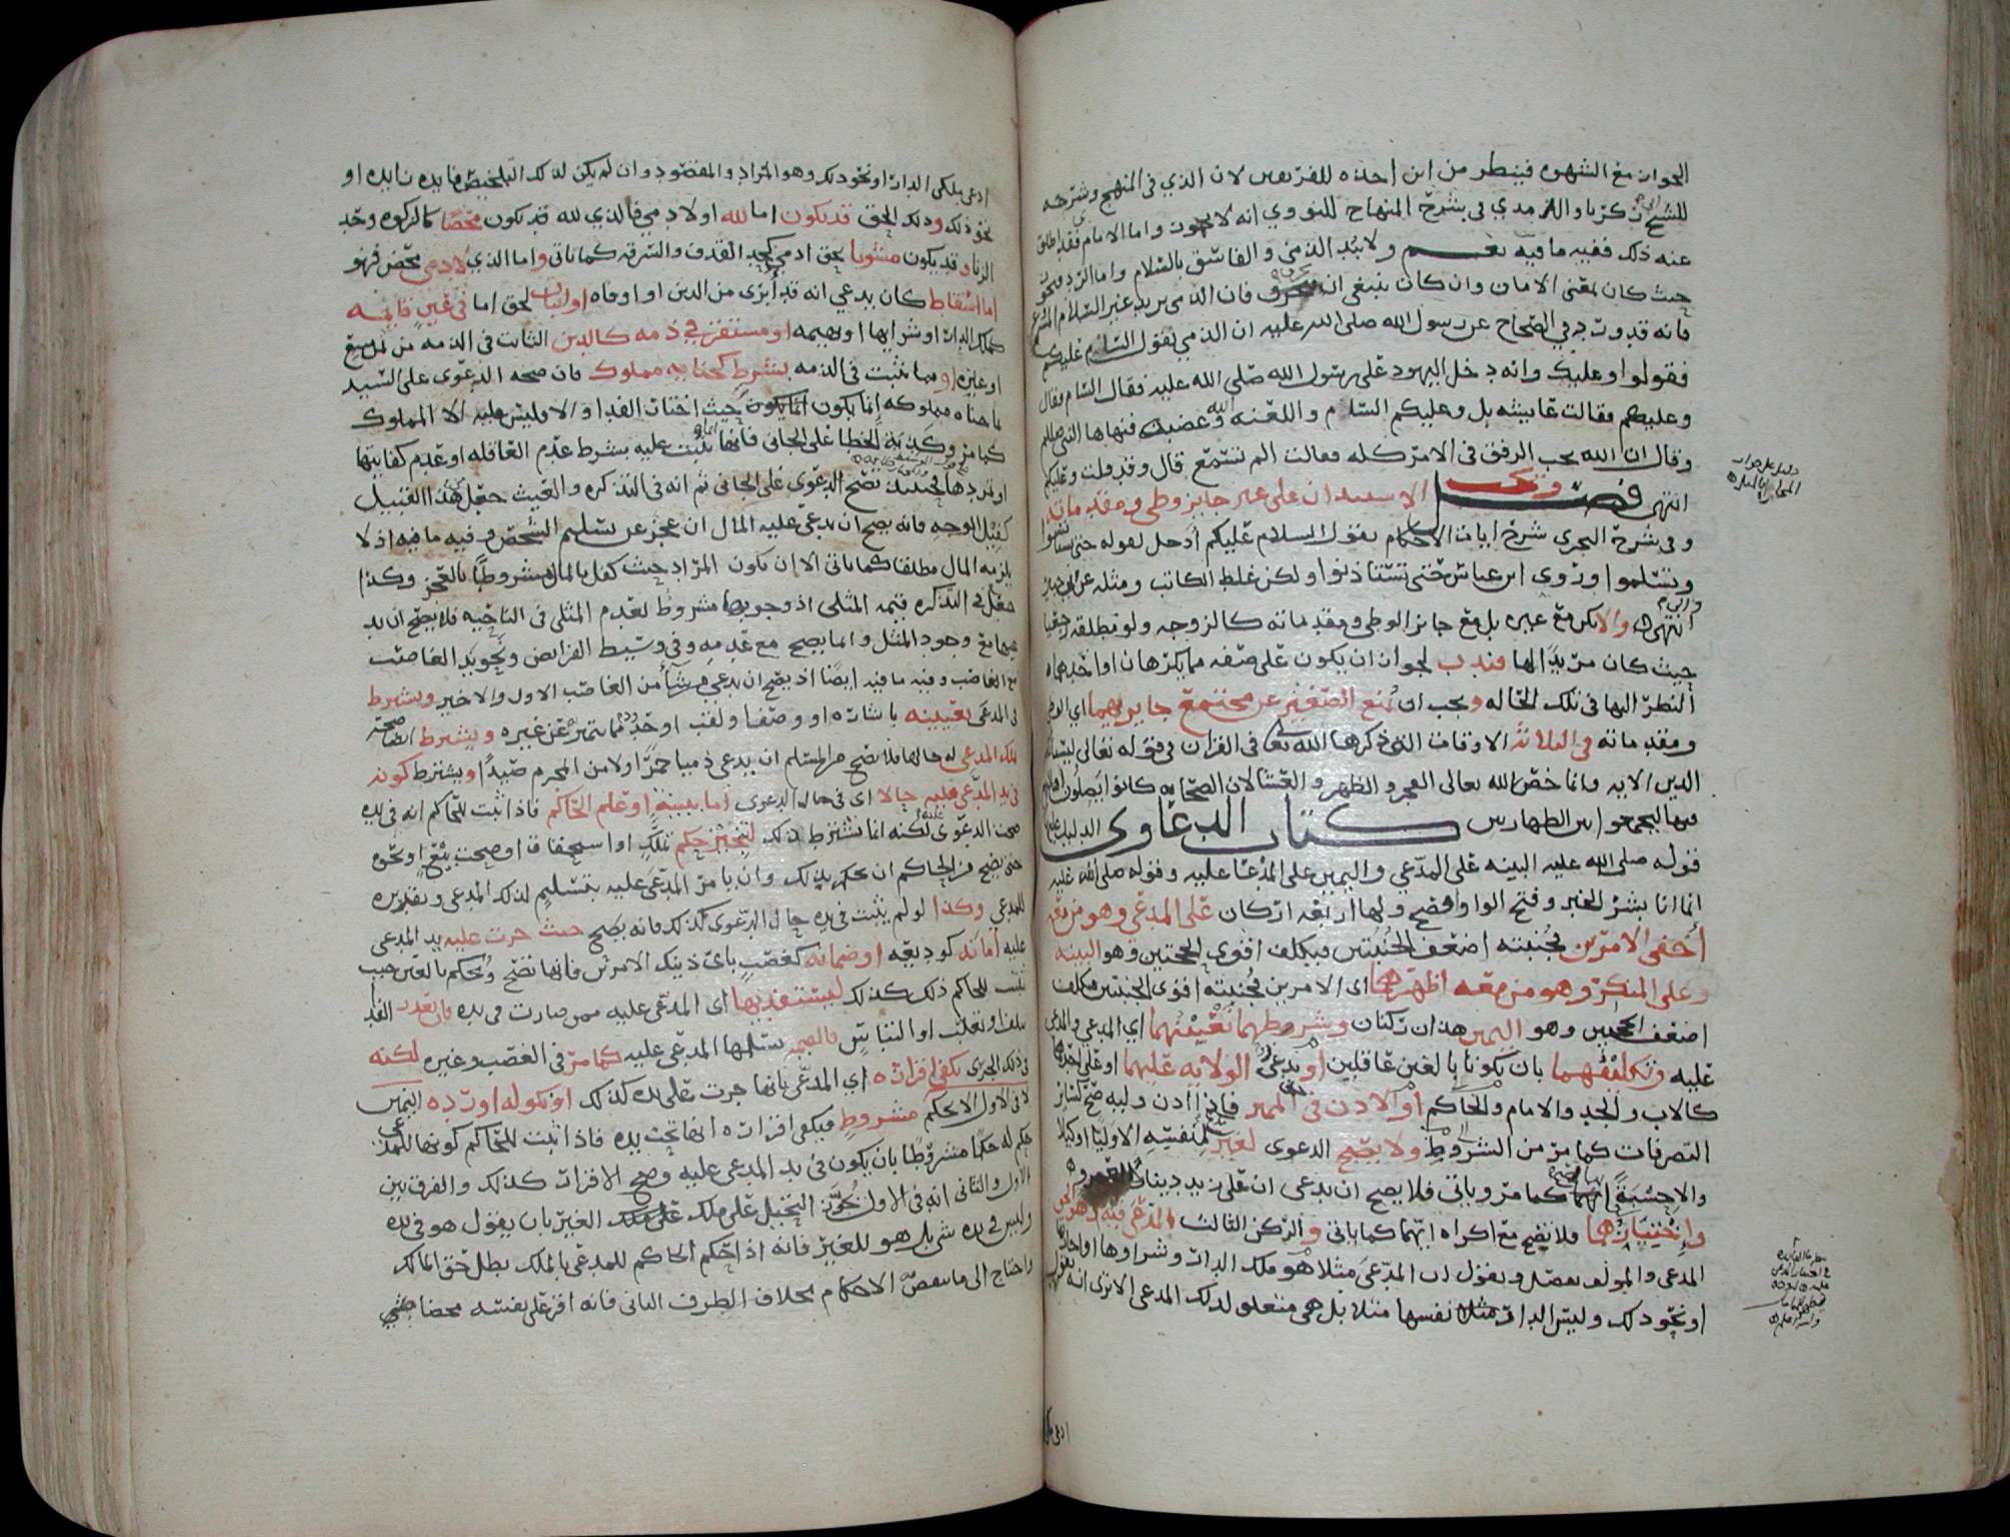 الجواز مع الشهوه فينظر من اين اخذه للفريقين لان الذي في المنهج وشرحه
للشيخ زكريا والدمدي في شرح المنهاج للنووي انه لا يجوز واما الامام فقد اطلق
عنه ذلك ففيه ما فيه نعم ولا يبد الذمي والفاسق بالسلام واما الرد فنحو
حيث كان لمعنى الامان وان كان ينبغي ان فان الذمي يريد غير السلام
فانه قد ورد في الصحاح عن رسول الله صلى الله عليه ان الذمي يقول السام عليكم
فقولوا وعليك وانه دخل اليهود على رسول الله صلى الله عليه فقال السام فقال
وعليكم فقالت عايشه بل وعليكم السام واللعنه وغضب الله فنهاها النبي صللم
وقال ان الله يحب الرفق في الامر كله فقالت الم تسمع قال وقد قلت وعليكم
انتهى فصل ويجب الاستيذان على غير جايز وطي ومقدماته
وفي شرح النجري شرح ايات الاحكام يقول السلام عليكم أدخل لقوله حتى تستانسوا
وتسلموا وروى ابن عباس حتى تستاذنوا ولكن غلط الكاتب ومثله عن ابن جبير
انتهى والا يكن مع غيره بل مع جايز الوطي ومقدماته كالزوجه ولو مطلقه رجعيا
حيث كان مريدا لها فندب لجواز ان يكون على صفه مما يكرهان او احدهما
النظر اليها في تلك الحاله ويجب ان يمنع الصغير عن مجتمع جايز بهما اي الوطي
ومقدماته في الثلاثه الاوقات التي ذكرها الله تعالى في القران في قوله تعالى ليستاذنكم
الذين الايه وانما خص الله تعالى الفجر والظهر والعشا لان الصحابه كانوا يصلون
فيها ليجمعوا بين الطهارتين كتاب الدعاوى الدليل عليها
قوله صلى الله عليه البينه على المدعي واليمين على المدعا عليه وقوله صلى الله عليه
انما انا بشر الخبر وفتح الواو افصح ولها اربعه اركان على المدعي وهو من معه
أخفى الامرين فجنبته اضعف الجنبتين فيكلف اقوى الحجتين وهو البينه
وعلى المنكر وهو من معه اظهرهما اي الامرين فجنبته اقوى الجنبتين فكلف
اضعف الحجتين وهو اليمين هذان ركنان وشروطهما تعيينهما اي المدعي والمدعى
عليه وتكليفهما بان يكونا بالغين عاقلين او يدعي الولايه عليهما او على احدهما
كالاب والجد والامام والحاكم او الاذن في حق المميز فاذا اذن وليه صح كساير
التصرفات كما مر من الشروط ولا يصح الدعوى لغير المدعي لنفسه الا وليا او وكيلا
والاحسبة كما مر وياتي فلا يصح ان يدعي ان على زيد دينارا لعمرو
واختيارهما فلا يصح مع اكراه ايهما كما ياتي والركن الثالث المدعى فيه وهو الحق
المدعى والمولف يفصل ويقول ان المدعى مثلا هو ملك الدار وشراوها او اجارتها
او نحو ذلك وليس الدار مثلا نفسها مثلا بل هي متعلق لذلك المدعى الا ترى انه يقول
ادعى ملكي
ادعى بملكي الدار او نحو ذلك وهو المراد والمقصود وان لم يكن لذلك التلخيص فايده زايده او
نحو ذلك وذلك الحق قد يكون اما لله او لادمي فالذي لله قد يكون محضا كالزكوه وحد
الزنا وقد يكون مشوبا بحق ادمي كحد القذف والسرقه كما ياتي واما الذي لادمي محض فهو
اما اسقاط كان يدعي انه قد أبرى من الدين او اوفاه او اثبات لحق اما في عين قايمه
كملك الدار او شرايها او بهيمه او مستقر في ذمه كالدين الثابت في الذمه من ثمن مبيع
او غيره او مما يثبت في الذمه بشرط كجنايه مملوك فان صحه الدعوى على السيد
ما جناه مملوكه انما يكون انما يكون حيث اختار الفدا والا فليس عليه الا المملوك
كما مر وكدية الخطا على الجاني فانها انما تثبت عليه بشرط عدم العاقله او عدم كفايتها
او تمردها فحينئذ تصح الدعوى على الجاني ثم انه في التذكره والغيث جعل من هذا القبيل
كفيل الوجه فانه يصح ان يدعي عليه المال ان عجز عن تسليم الشخص وفيه ما فيه اذ لا
يلزمه المال مطلقا كما ياتي الا ان يكون المراد حيث كفل بالمال مشروطا بالعجز وكذا
جعل في التذكره قيمه المثلي اذ وجوبها مشروط لعدم المثلي في الناحيه فلا يصح ان يد
عيها مع وجود المثل وانما يصح مع عدمه وفي وسيط الفرايض وتجويد الغاصب
من الغاصب وفيه ما فيه ايضا اذ يصح ان يدعي من شا من الغاصب الاول والاخير ويشرط
في المدعى تعيينه باشاره او وصف او لقب او حدود مما يتميز به عن غيره ويشرط ايضا صحه
ملك المدعي له حالها فلا يصح من المسلم ان يدعي ذميا خمرا ولا من المحرم صيدا ويشترط كونه
في يد المدعى عليه حالا اى في حاله الدعوى اما ببينة او علم الحاكم فاذا ثبت للحاكم انه في يده
صحت الدعوى عليه لكنه انما يشترط ذلك لتنجيز حكم بملك او استحقاق او صحت بيع او نحوه
حتى يصح من الحاكم ان يحكم بذلك وان يامر المدعى عليه بتسليم لذلك المدعي وتقريره
للمدعي وكذا لو لم يثبت في يده حال الدعوى كذلك فانه يصح حيث جرت عليه يد المدعى
عليه امانه كوديعه او ضمانه كغصب باى ذينك الامرين فانها تصح ويحكم بالعين حيث
ثبتت للحاكم ذلك كذلك ليستفديها اى المدعى عليه ممن صارت في يده فان تعذر الفدا
بتلف او تغلب او التباس فالقيمه يسلمها المدعى عليه كما مر في الغصب وغيره لكنه
في ذلك الجرى يكفي اقراره اي المدعى بانها جرت على يده كذلك او نكوله او رده اليمين
لا في الاول الا بحكم مشروط فيكفي اقراره انها تحت يده فاذا ثبت للحاكم كونها للمدعي
حكم له حكما مشروطا بان يكون في يد المدعى عليه وصح الاقرار كذلك والفرق بين
الاول والثاني انه في الاول يجوز التحيل على ملك على ملك الغير بان يقول هو في يده
وليس في يده شي بل هو للغير فانه اذا حكم الحاكم للمدعي بالملك بطل حق المالك
واحتاج الى ما ينقض الاحكام بخلاف الطرف الثاني فانه اقر على نفسه محضا